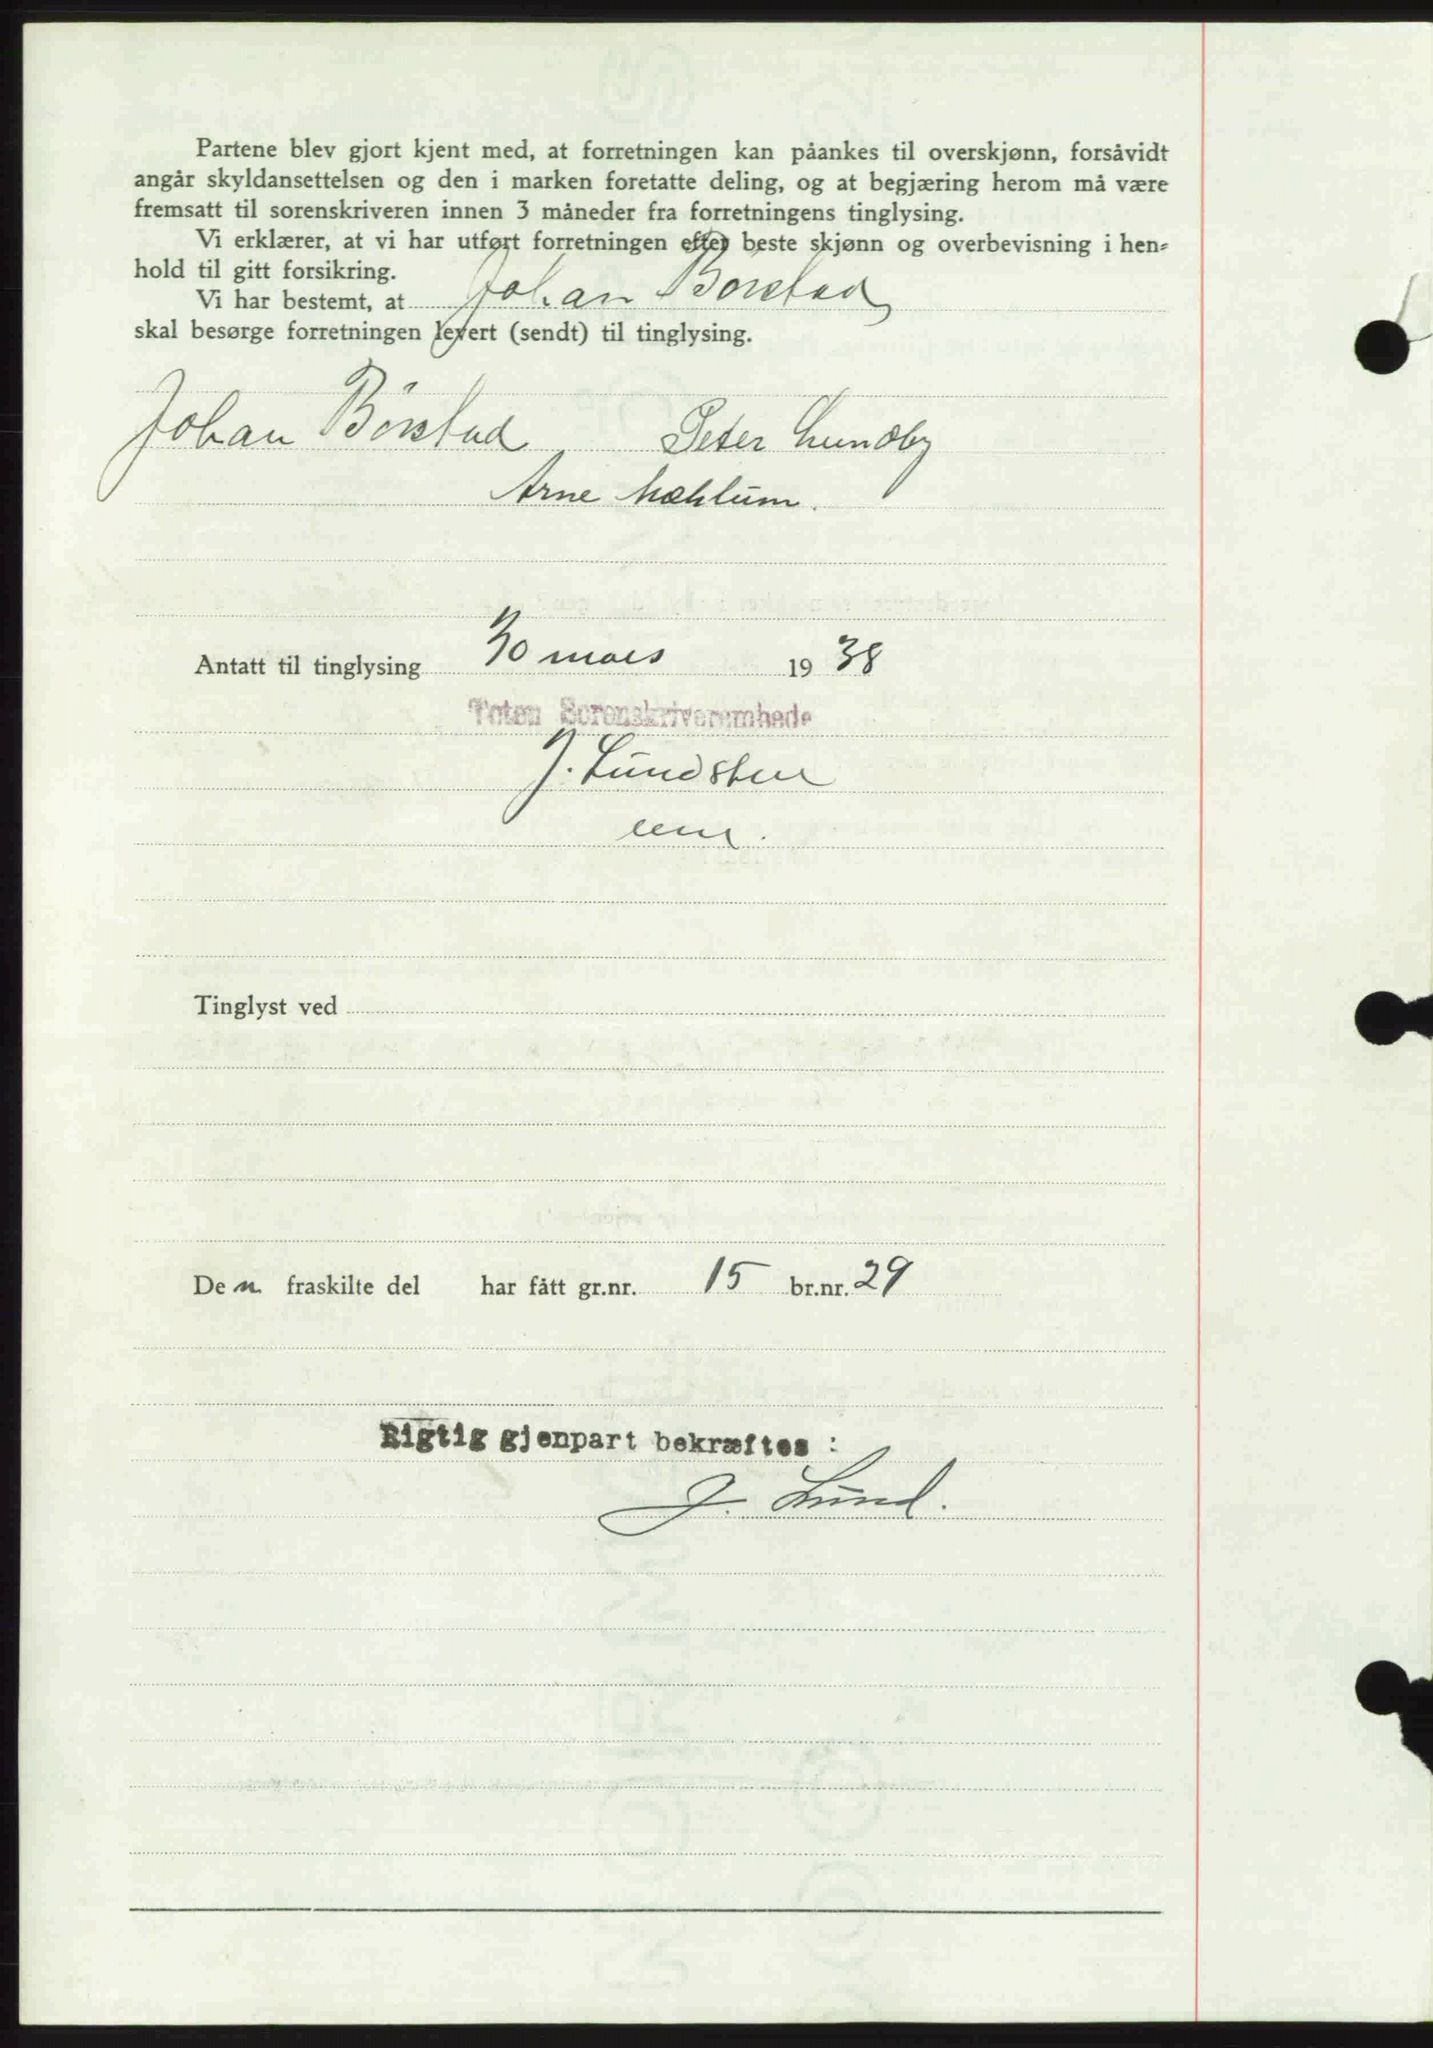 Partene blev gjort kjent med, at forretningen kan påankes til overskjønn, forsåvidt
angår skyldansettelsen og den i marken foretatte deling, og at begjæring herom må være
fremsatt til sorenskriveren innen 3 måneder fra forretningens tinglysing.
Vi erklærer, at vi har utført forretningen efter beste skjønn og overbevisning i hen-
hold til gitt forsikring.
Vi har bestemt, at Johan Börstad
skal besørge forretningen levert (sendt) til tinglysing.
Johan Börstad Peter Lundby
Arne Mæhlum.
Antatt til tinglysing 30 mars 1938
Toten Sorenskriverembede
J. Lundsten
Tinglyst ved
Den fraskilte del har fått gr.nr. 15 br.nr. 29
Rigtig gjenpart bekræftes :
J. Lund.